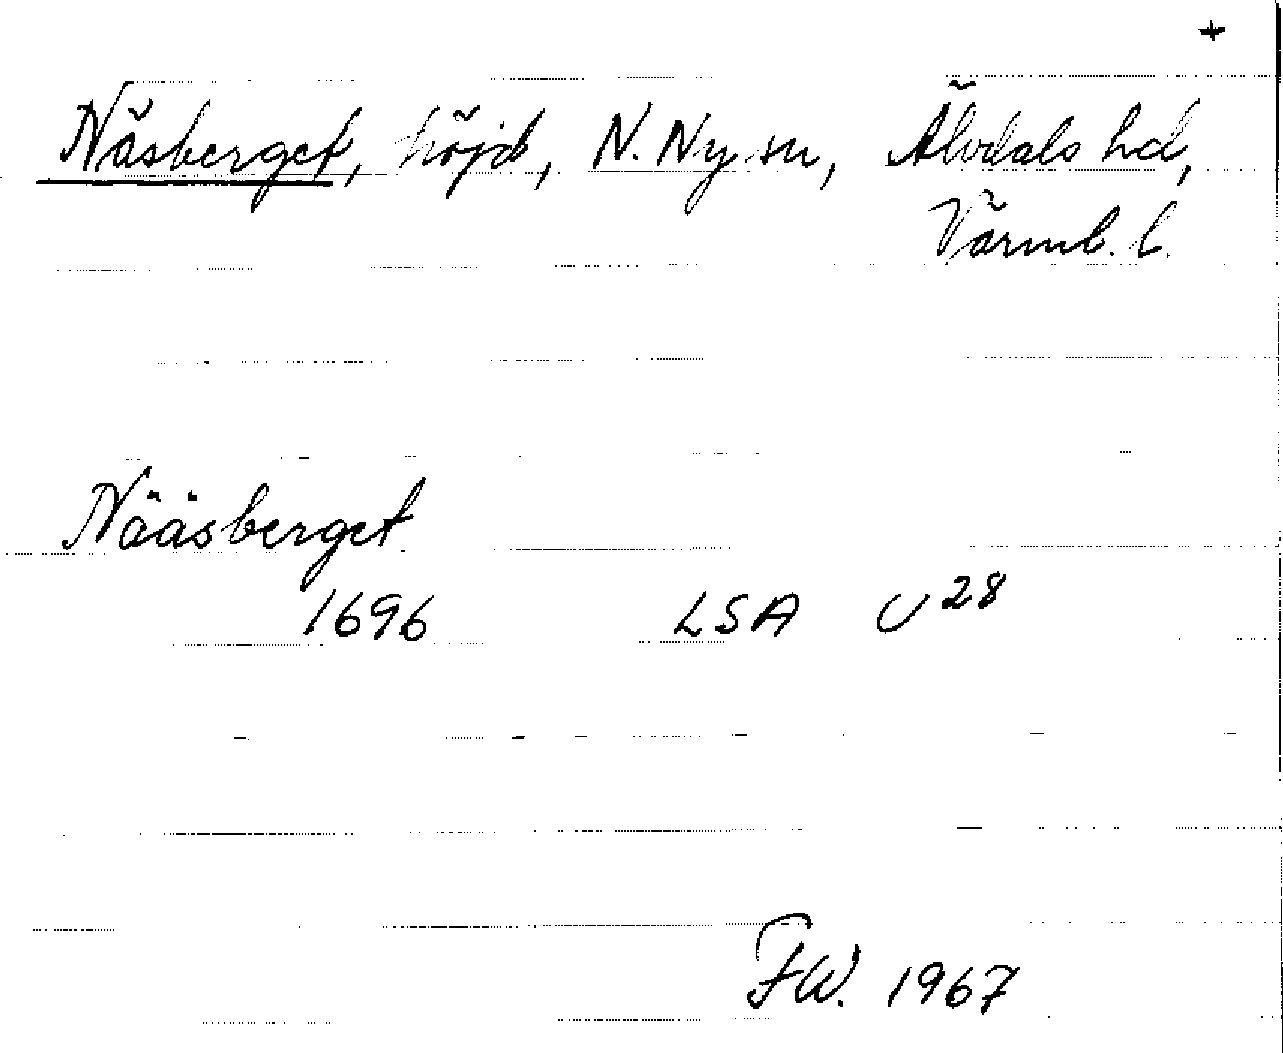 +
Näsberget, höjd, N. Ny sn, Älvdals hd,
Värml. l.
Nääsberget
1696 LSA U 28
FW. 1967